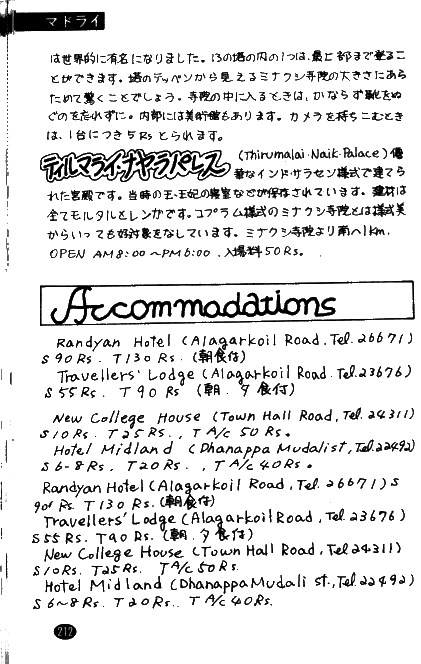 マドライ
は世界的に有名になりました。13の塔の内の1つは、最上部まで登るこ
とができます。塔のテッペンから見えるミナクシ寺院の大きさにあら
ためて驚くことでしょう。寺院の中に入るときは、かならず靴をぬ
ぐのを忘れずに。内部には美術館もあります。カメラを持ちこむとき
は、1台につき5Rsとられます。
ティルマライ・ナヤラパレス (Thirumalai・Naik・Palace) 優
雅なインド・サラセン様式で建てら
れた宮殿です。当時の王・王妃の寝室などが保存されています。建材は
全てモルタルとレンガです。コプラム様式のミナクシ寺院とは様式美
からいっても好対象をなしています。ミナクシ寺院より南へ1km.
OPEN AM8:00〜PM6:00. 入場料50Rs.
Accommadations
Randyan Hotel (Alagarkoil Road, Tel. 26671)
S 90 Rs. T 130 Rs. (朝食付)
Travellers' Lodge (Alagarkoil Road. Tel. 23676)
S 55 Rs. T 90 Rs (朝.夕食付)
New College House (Town Hall Road, Tel. 24311)
S 10 Rs. T 25 Rs., T A/c 50 Rs.
Hotel Midland (Dhanappa Mudalist, Tel. 22492)
S 6-8 Rs, T 20 Rs. , T A/c 40 Rs.
Randyan Hotel (Alagarkoil Road, Tel. 26671) S
90 Rs. T 130 Rs. (朝食付)
Travellers' Lodge (Alagarkoil Road, Tel. 23676)
S 55 Rs. T 90 Rs. (朝.夕食付)
New College House (Town Hall Road, Tel 24311)
S 10 Rs. T 25 Rs. T A/c 50 Rs.
Hotel Midland (Dhanappa Mudali st., Tel. 22492)
S 6〜8 Rs. T 20 Rs.. T A/c 40 Rs.
212